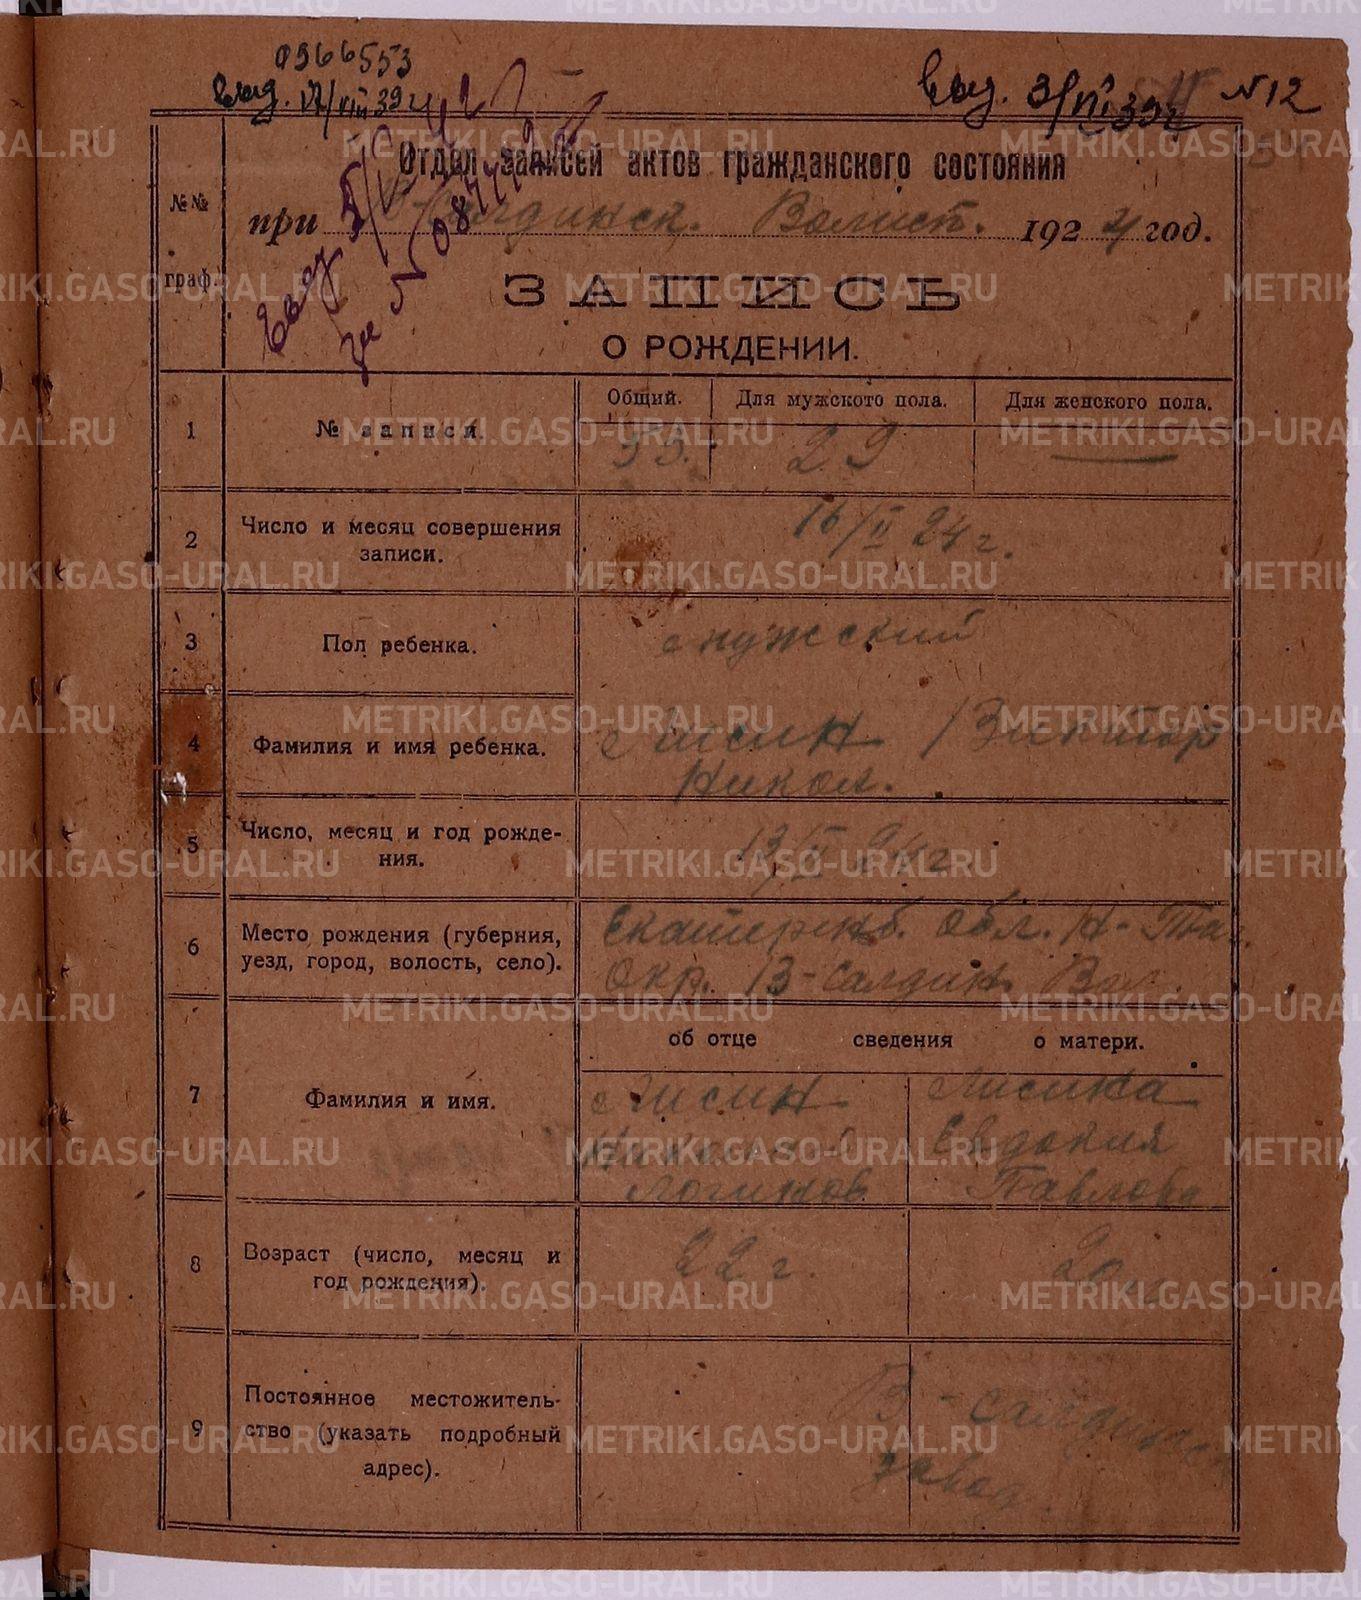 0966553
выд. 17/VIII 39 г
выд. 3/VI 39 г №12
Отдел записей актов гражданского состояния
№№ граф.
при В-Салдинск. Волист. 1924 год.
ЗАПИСЬ
О РОЖДЕНИИ.
Общий. Для мужского пола. Для женского пола.
1 № записи. 29 —
2 Число и месяц совершения записи. 16/II 24 г.
3 Пол ребенка. мужской
4 Фамилия и имя ребенка. Лисин Виктор
Никол.
5 Число, месяц и год рожде-
ния. 13/II 24 г.
6 Место рождения (губерния, Екатеринб. Обл. Н-Таг.
уезд, город, волость, село). Окр. В-Салдин. Вол.
об отце сведения о матери.
7 Фамилия и имя. Лисин Лисина
Николай Евдокия
Логинов Павлова
8 Возраст (число, месяц и
год рождения). 22 г. 20 л.
9 Постоянное местожитель-
ство (указать подробный
адрес). В-Салдинск
завод.
METRIKI.GASO-URAL.RU